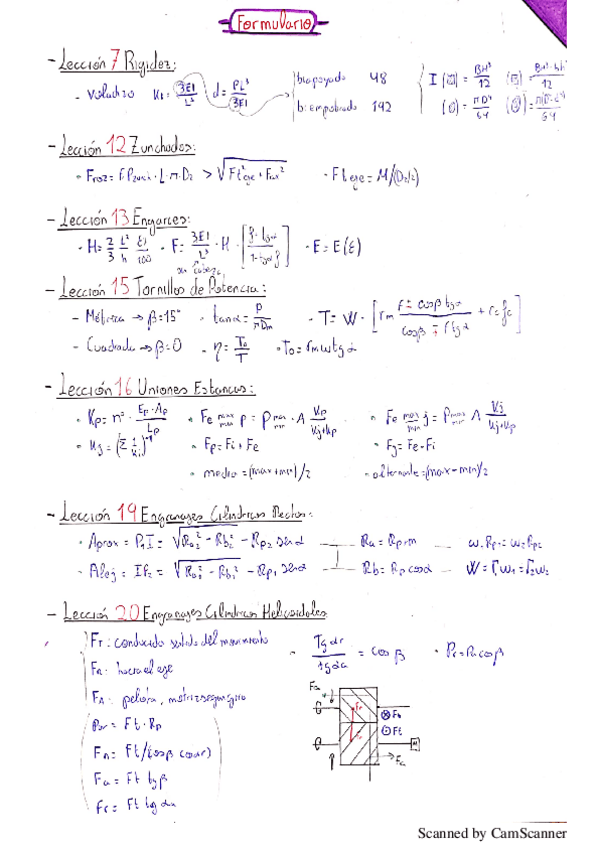 Formulario
- Lección 7 Rigidez:
• Voladizo K1 = 3EI/L³ d = PL³/3EI biapoyado 48 I (□) = BH³/12
b: empotrado 192 (○) = πD⁴/64
- Lección 12 Zunchados:
• Froz = f·Pzunch·L·π·D2 > √Ft²eje + Fax² • Ft eje = M/(D2/2)
- Lección 13 Engarces:
• H = 2/3 L²/h ε/100 • F = 3EI/L³ · H • E = E(ε)
- Lección 15 Tornillos de Potencia:
- Métrica → β = 15° • tanα = P/πDm • T = W·
- Cuadrada → β = 0 • η = To/T • To = rm w tg α
- Lección 16 Uniones Estancas:
• Kp = n° · Ep·Ap/Lp • Fe max min p = Pmax min · A Kp/Kj+Kp • Fe max min j = Pmax min A Kj/Kj+Kp
• Kj = (Σ 1/Ki)⁻¹ • Fp = Fi + Fe • Fj = Fe - Fi
• medio = (max+min)/2 • alternante = (max-min)/2
- Lección 19 Engranajes Cilíndricos Rectos:
• Aprox = P1I = √Ra2² - Rb2² - Rp2 senα Ra = Rp+m ω1Rp1 = ω2Rp2
• Alej = IP2 = - Rp1 senα Rb = Rp cosα
- Lección 20 Engranajes Cilíndricos Helicoidales
FT: conducido sentido del movimiento Tg αr/tg αa = cos β
FR: hacia el eje
FA: pelota, motriz segun giro
Par = Ft · Rp
Fn = Ft/(cosβ cosαr)
Fa = Ft tgβ
Fr = Ft tg αr
Fa
Ft
M
Fa
Scanned by CamScanner